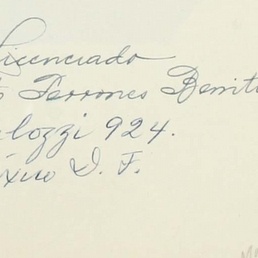 Licenciado
Terrones Benit
lozzi 924.
xico D. F.